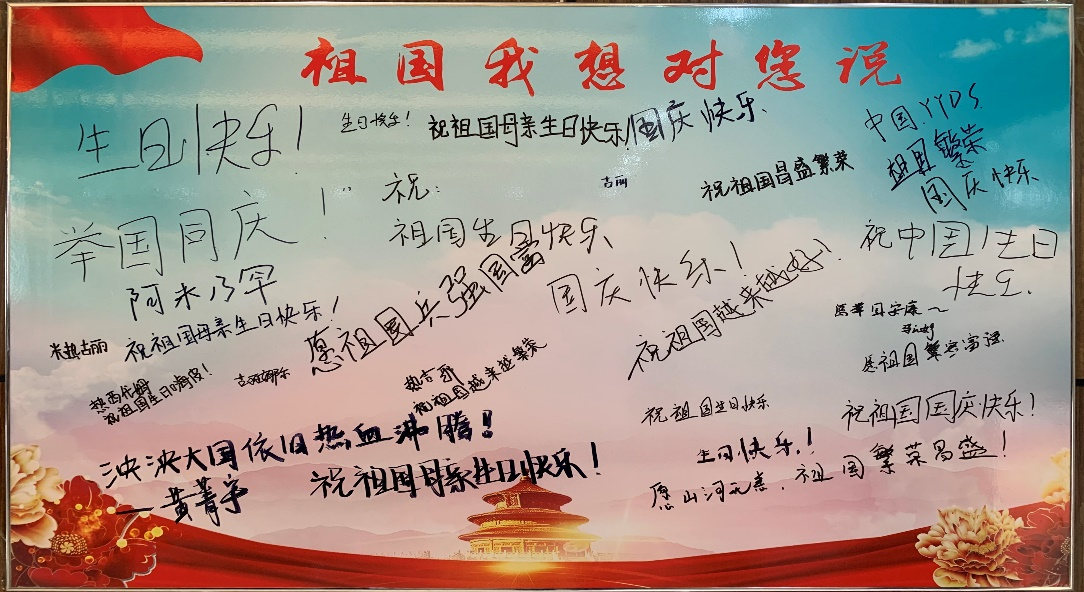 祖国我想对您说
生日快乐!
生日快乐!
祝祖国母亲生日快乐!
国庆快乐
中国YYDS
祖国繁荣
国庆快乐
古丽
祝祖国昌盛繁荣
举国同庆!
祝:
祖国生日快乐
祝中国生日
快乐.
阿米乃罕
愿祖国兵强国富
国庆快乐!
祝祖国越来越好!
米热古丽
祝祖国母亲生日快乐!
祝祖国生日
祝祖国越来越繁荣
愿祖国繁荣富强
祝祖国生日快乐
祝祖国国庆快乐!
泱泱大国依旧热血沸腾!
—黄菁宇
祝祖国母亲生日快乐!
生日快乐!
愿山河无恙,祖国繁荣昌盛!